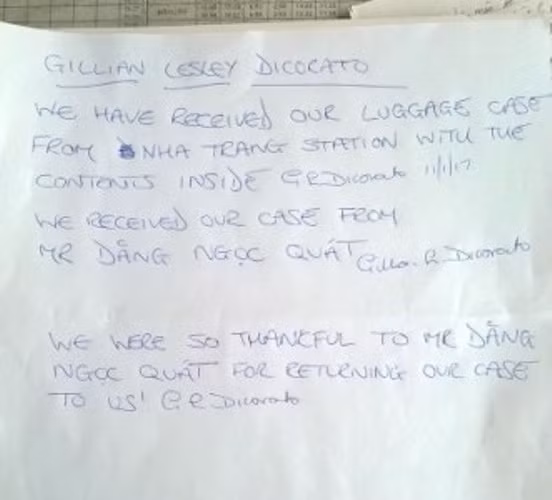 GILLIAN LESLEY DICORATO
WE HAVE RECEIVED OUR LUGGAGE CASE
FROM NHA TRANG STATION WITH THE
CONTENTS INSIDE G R Dicorato 11/1/17.
WE RECEIVED OUR CASE FROM
MR DẴNG NGỌC QUÁT Gillian R Dicorato
WE WERE SO THANKFUL TO MR DẴNG
NGỌC QUÁT FOR RETURNING OUR CASE
TO US! G R Dicorato